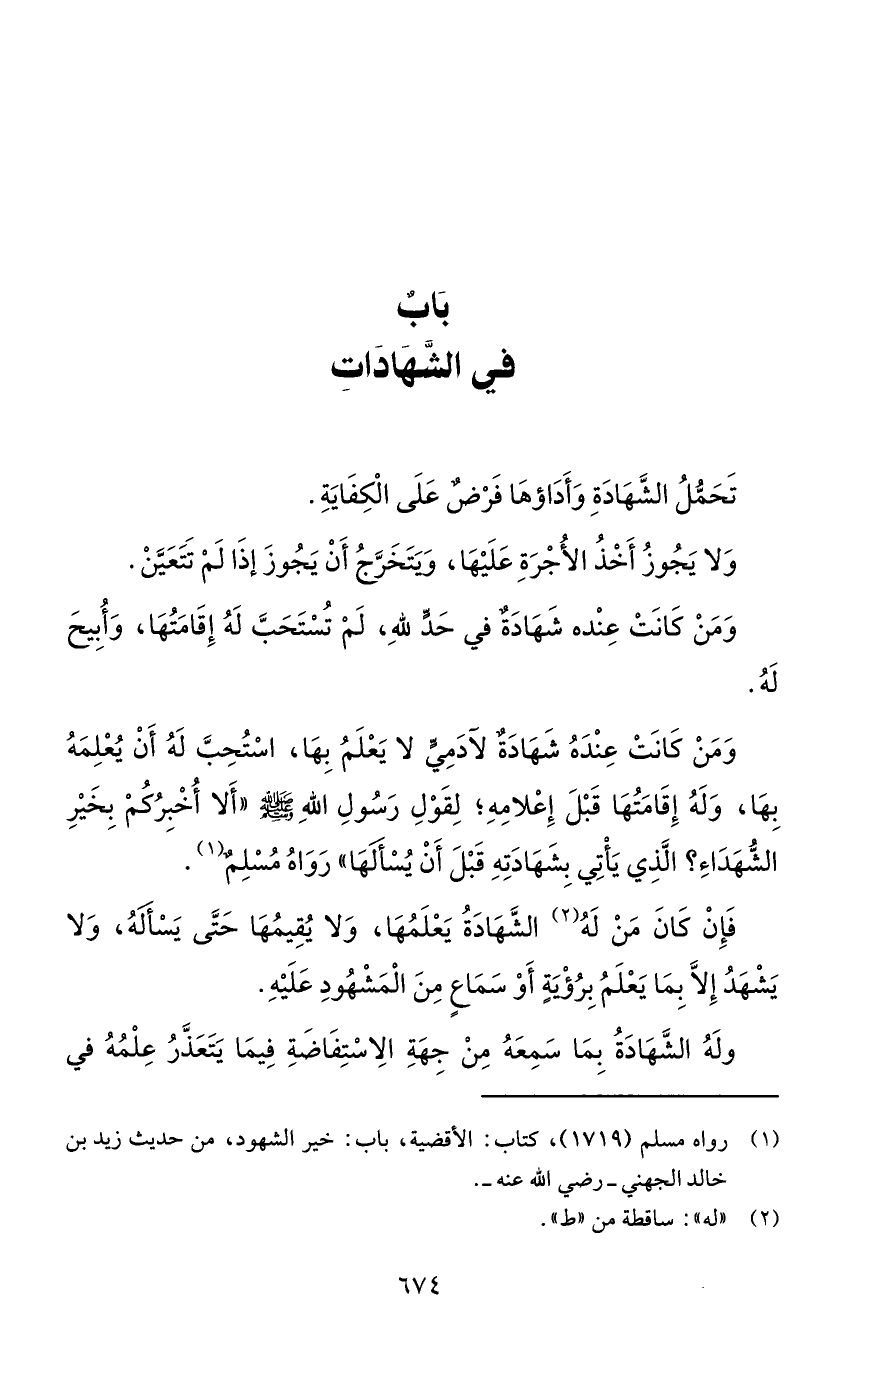 بَابٌ
في الشَّهَادَاتِ
تَحَمُّلُ الشَّهَادَةِ وَأَدَاؤهَا فَرْضٌ عَلَى الْكِفَايَةِ.
وَلا يَجُوزُ أَخْذُ الأُجْرَةِ عَلَيْهَا، وَيَتَخَرَّجُ أَنْ يَجُوزَ إذَا لَمْ تَتَعَيَّنْ.
وَمَنْ كَانَتْ عِنْده شَهَادَةٌ في حَدٍّ للهِ، لَمْ تُسْتَحَبَّ لَهُ إقَامَتُهَا، وَأُبِيحَ
لَهُ.
وَمَنْ كَانَتْ عِنْدَهُ شَهَادَةٌ لآدَمِيٍّ لا يَعْلَمُ بِهَا، اسْتُحِبَّ لَهُ أَنْ يُعْلِمَهُ
بِهَا، وَلَهُ إقَامَتُهَا قَبْلَ إعْلامِهِ؛ لِقَوْلِ رَسُولِ اللهِ ﷺ «أَلا أُخْبِرُكُمْ بِخَيْرِ
الشُّهَدَاءِ؟ الَّذِي يَأْتِي بِشَهَادَتِهِ قَبْلَ أَنْ يُسْأَلَهَا» رَوَاهُ مُسْلِمٌ(١).
فَإِنْ كَانَ مَنْ لَهُ(٢) الشَّهَادَةُ يَعْلَمُهَا، وَلا يُقِيمُهَا حَتَّى يَسْأَلَهُ، وَلا
يَشْهَدُ إِلاَّ بِمَا يَعْلَمُ بِرُؤْيَةٍ أَوْ سَمَاعٍ مِنَ الْمَشْهُودِ عَلَيْهِ.
ولَهُ الشَّهَادَةُ بِمَا سَمِعَهُ مِنْ جِهَةِ الاِسْتِفَاضَةِ فِيمَا يَتَعَذَّرُ عِلْمُهُ في
(١) رواه مسلم (١٧١٩)، كتاب: الأقضية، باب: خير الشهود، من حديث زيد بن
خالد الجهني ـ رضي الله عنه ـ.
(٢) «له»: ساقطة من «ط».
٦٧٤